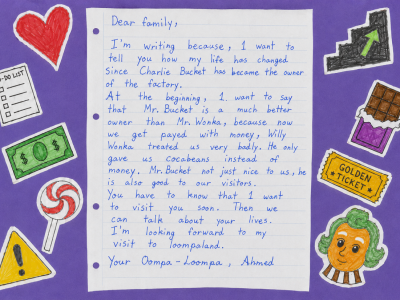 Dear family,
I'm writing because, I want to
tell you how my life has changed
Since Charlie Bucket has become the owner
of the factory.
At the beginning, I want to say
that Mr. Bucket is a much better
owner than Mr. Wonka, because now
we get payed with money, Willy
Wonka treated us very badly. He only
gave us cocabeans instead of
money. Mr. Bucket not just nice to us, he
is also good to our visitors.
You have to know that I want
to visit you soon. Then we
can talk about your lives.
I'm looking forward to my
visit to loompaland.
Your Oompa-Loompa, Ahmed
O-DO LIST
$ $
GOLDEN
TICKET
!